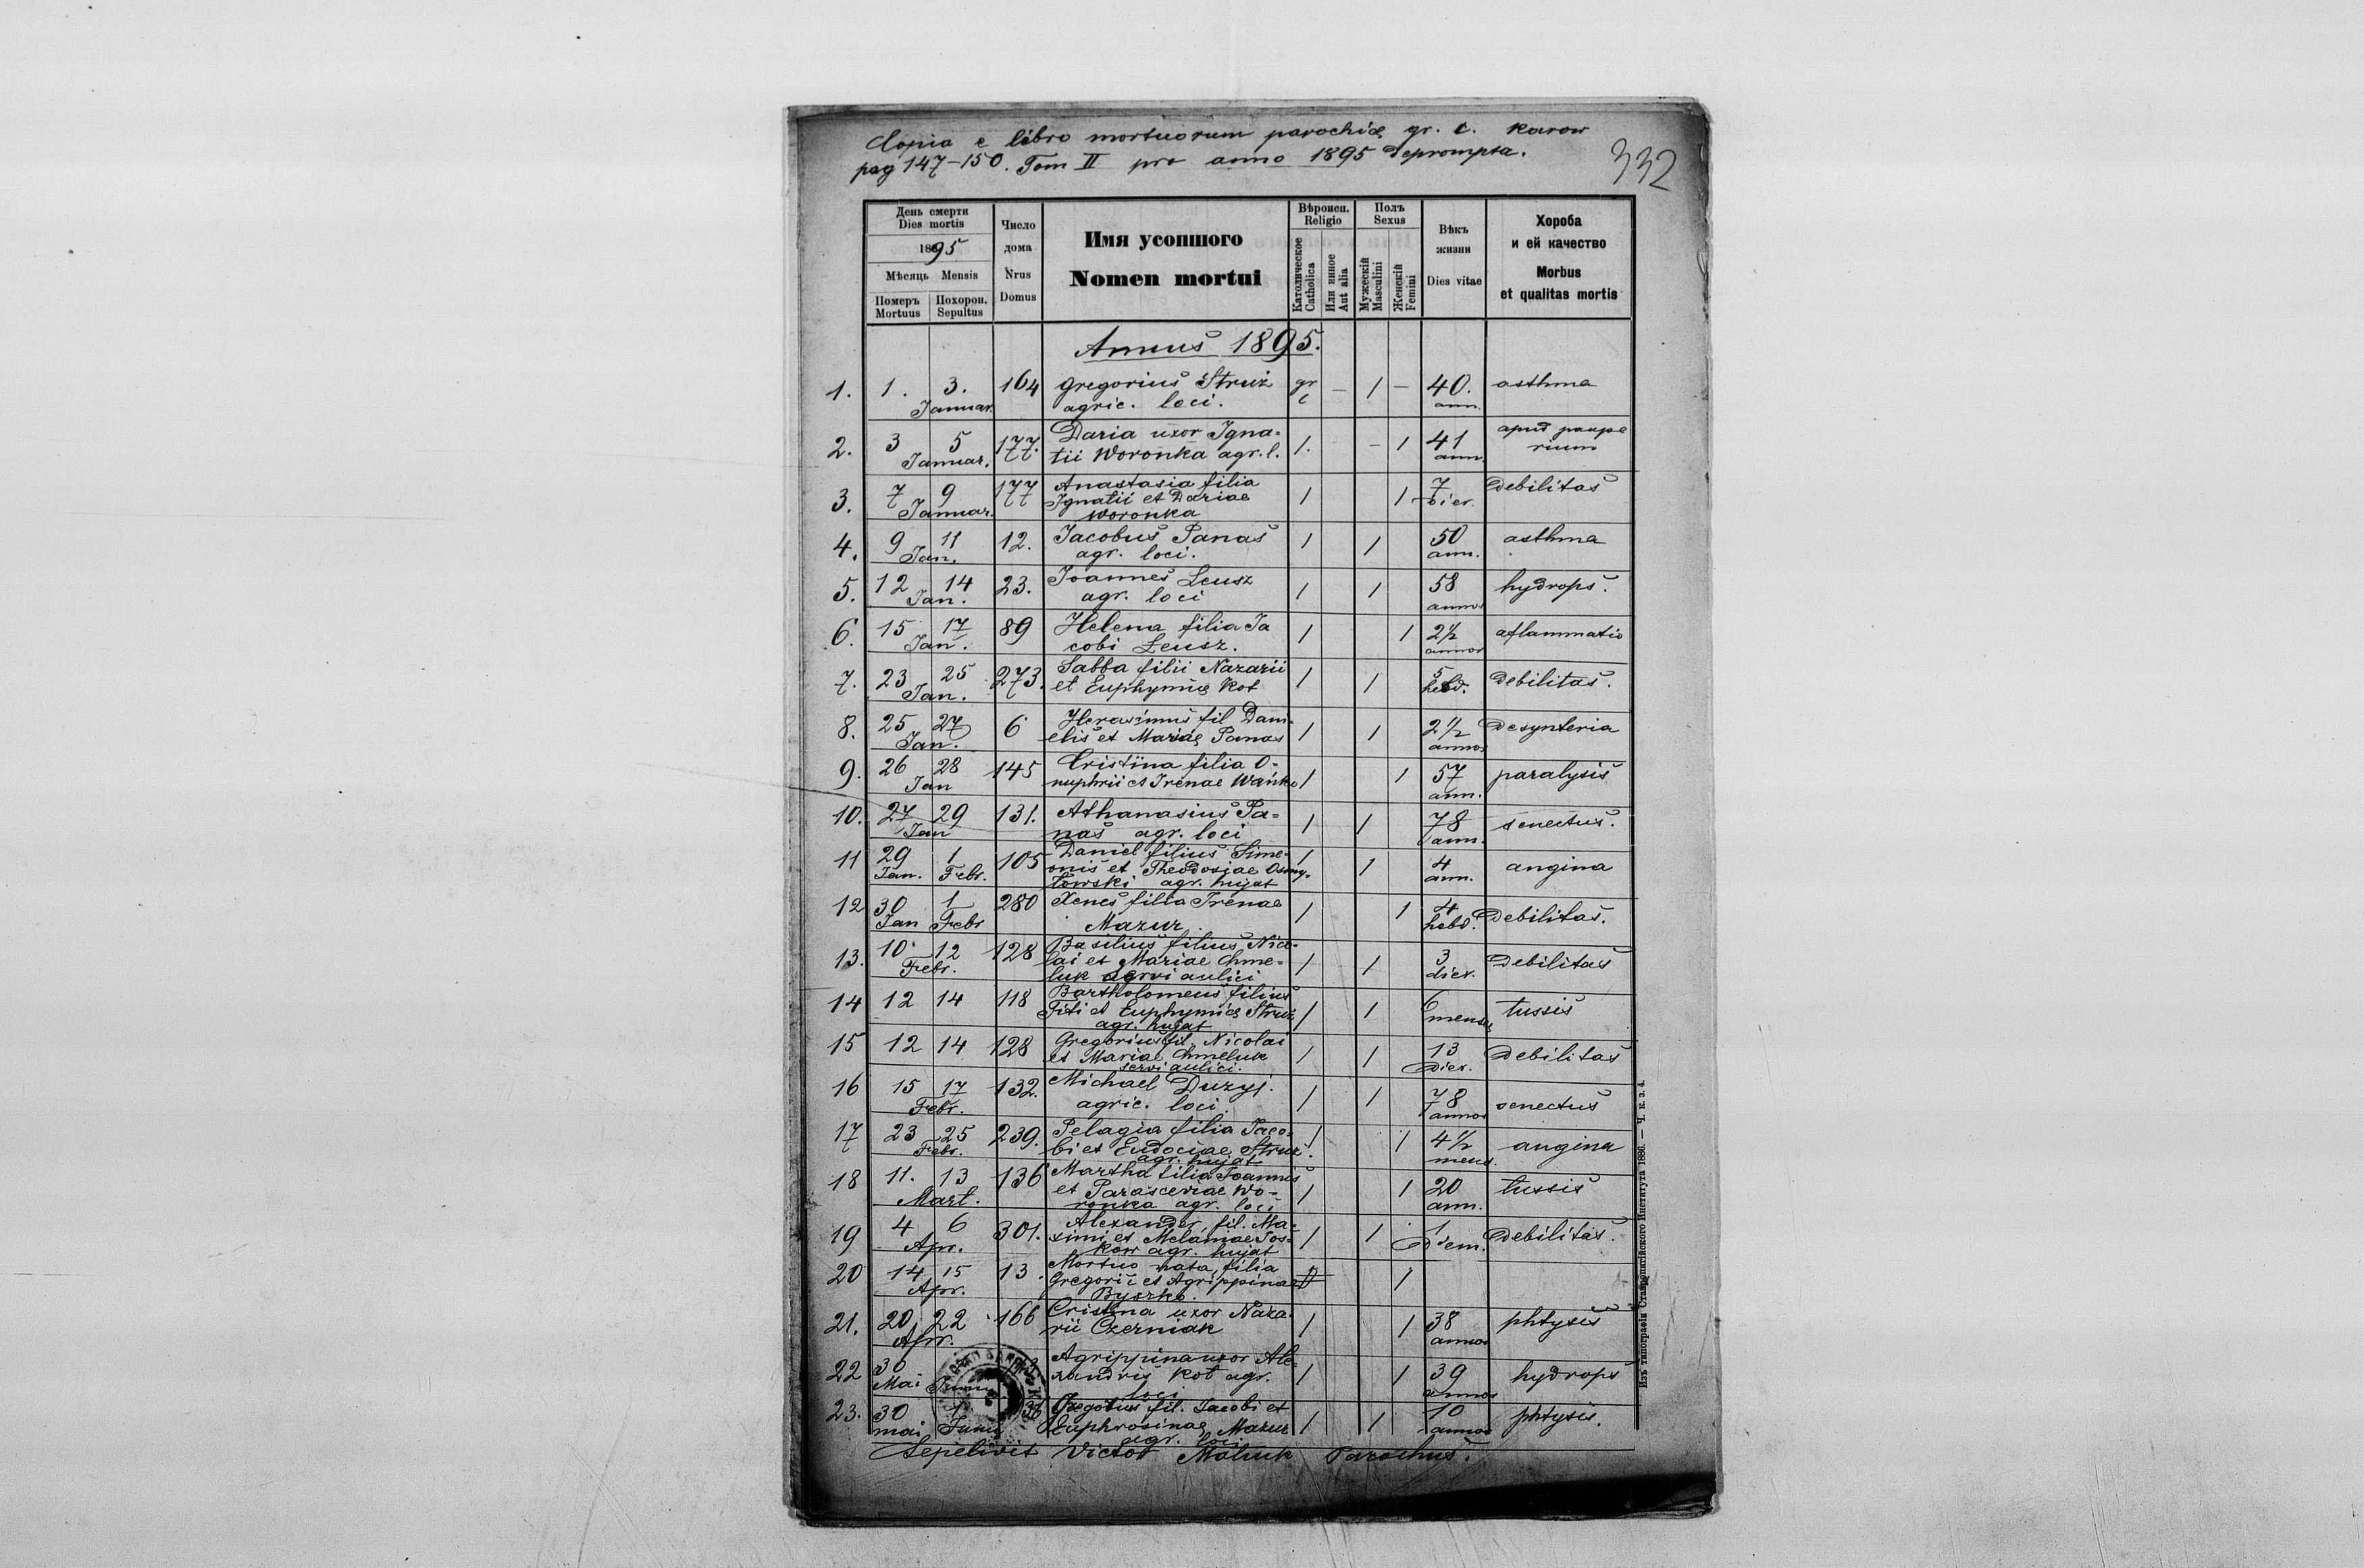 Copia e libro mortuorum parochiæ gr. c. Karow
pag 147-150. Tom II pro anno 1895 deprompta.
332
День смерти
Dies mortis
1895
Мѣсяць Mensis
Померъ Похорон.
Mortuus Sepultus
Число
дома
Nrus
Domus
Имя усопшого
Nomen mortui
Вѣроисп.
Religio
Католическое
Catholica
Или инное
Aut alia
Полъ
Sexus
Мужескій
Masculini
Женскій
Femini
Вѣкъ
жизни
Dies vitae
Хороба
и ей качество
Morbus
et qualitas mortis
Annus 1895.
1. 1. 3. 164 Gregorius Struż gr — 1 — 40. asthma
Januar. agric. loci. c ann.
2. 3 5 177. Daria uxor Igna- 1. - - 1 41 apud paupe
Januar. tii Woronka agr. l. ann. rium
3. 7 9 177 Anastasia filia 1 1 7 debilitas
Januar. Ignatii et Dariae dier.
Woronka
4. 9 11 12. Jacobus Panas 1 1 50 asthma
Jan. agr. loci. ann.
5. 12 14 23. Joannes Leusz 1 1 58 hydrops.
Jan. agr. loci annos
6. 15 17 89 Helena filia Ja 1 1 2½ aflammatio
Jan. cobi Leusz. annos
7. 23 25 273. Sabba filii Nazarii 1 1 5 debilitas.
Jan. et Euphymiæ Kot hebd.
8. 25 27 6 Herasimus fil Dani- 1 1 2½ desynteria
Jan. elis et Mariæ Panas annos
9. 26 28 145 Cristina filia O- 1 1 57 paralysis
Jan nuphrii et Irenae Wańko ann.
10. 27 29 131. Athanasius Pa- 1 1 78 senectus.
Jan nas agr. loci ann.
11 29 1 105 Daniel filius Sime- 1 1 4 angina
Jan. Febr. onis et Theodosiae Osmy- ann.
łowski agr. hujat
12 30 1 280 Xenes filia Irenae 1 1 4 debilitas.
Jan Febr Mazur. hebd.
13. 10 12 128 Basilius filius Nico- 1 1 3 debilitas
Febr. lai et Mariae Chme- dier.
luk servi aulici
14 12 14 118 Bartholomeus filius 1 1 6 tussis
Titi et Euphymiæ Struż menses
agr. hujat
15 12 14 128 Gregorius fil. Nicolai 1 1 13 debilitas
et Mariae Chmeluk dier.
servi aulici.
16 15 17 132. Michael Duzyj. 1 1 78 senectus
Febr. agric. loci. annos
17 23 25 239. Pelagia filia Jaco- 1 1 4½ angina
Febr. bi et Eudociae Struż. mens.
agr. hujat
18 11. 13 136 Martha filia Joannis 1 1 20 tussis
Mart. et Parasceviae Wo- ann.
ronka agr. loci
19 4 6 301. Alexander, fil. Ma- 1 1 1 debilitas.
Apr. ximi et Melaniae Pos- diem.
kow agr. hujat
20 14 15 13. Mortuo nata, filia 1
Apr. Gregorii et Agrippinae
Byszko.
21. 20 22 166 Cristina uxor Naza- 1 1 38 phtysis
Apr. rii Czerniak annos
22 30 Agrippina uxor Ale- 1 1 39 hydrops
Mai xandris Kot agr. annos
loci
23. 30 1 36 Gregorius fil. Jacobi et 1 1 10 phtysis.
mai Junii Euphrosinae Mazur annos
agr. loci
Sepelivit Victor Matiuk Parochus.
Изъ типографіи Ставропигійского Института 1886. — Ч. к. з. 4.